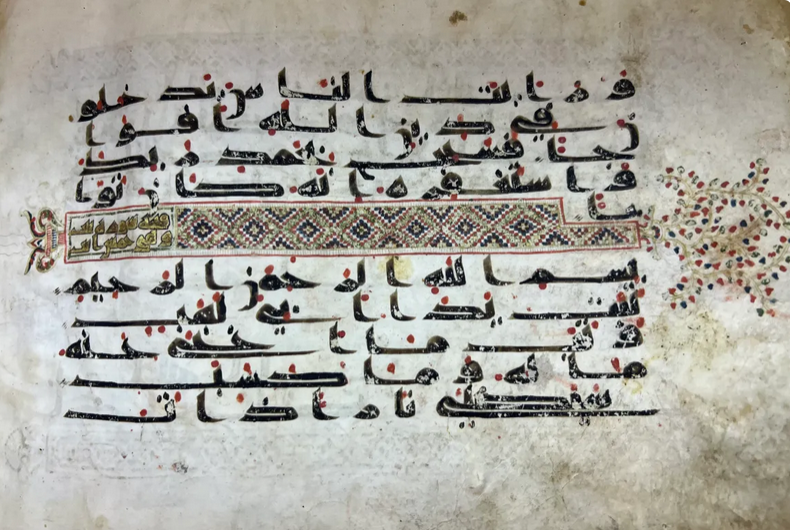 و رايت الناس يدخلو
ن في دين الله افوا
جا فسبح بحمد ربك
و استغفره انه كان توا
با
سوره تبت
و هي خمس ايات
بسم الله الرحمن الرحيم
تبت يدا ابي لهب
و تب ما اغنى عنه
ماله و ما كسب
سيصلى نارا ذات